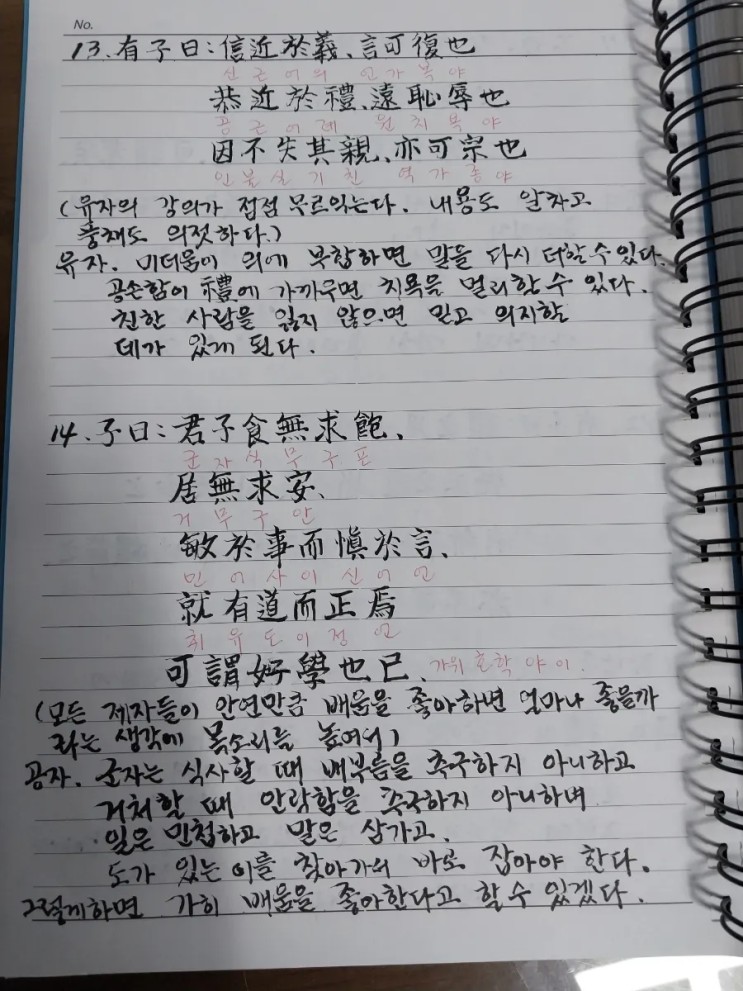 No.
13. 有子曰: 信近於義、言可復也
신근어의 언가복야
恭近於禮、遠恥辱也
공근어례 원치욕야
因不失其親、亦可宗也
인불실기친 역가종야
(유자의 강의가 점점 무르익는다. 내용도 알차고
풍채도 의젓하다.)
유자. 미더움이 의에 부합하면 말을 다시 더할 수 있다.
공손함이 禮에 가까우면 치욕을 멀리할 수 있다.
친한 사람을 잃지 않으면 믿고 의지할
데가 있게 된다.
14. 子曰: 君子食無求飽、
군자식무구포
居無求安、
거무구안
敏於事而愼於言、
민어사이신어언
就有道而正焉
취유도이정언
可謂好學也已. 가위호학야이.
(모든 제자들이 안연만큼 배움을 좋아하면 얼마나 좋을까
라는 생각에 목소리를 높여서)
공자. 군자는 식사할 때 배부름을 추구하지 아니하고
거처할 때 안락함을 추구하지 아니하며
일은 민첩하고 말은 삼가고.
도가 있는 이를 찾아가 바로 잡아야 한다.
그렇게하면 가히 배움을 좋아한다고 할 수 있겠다.